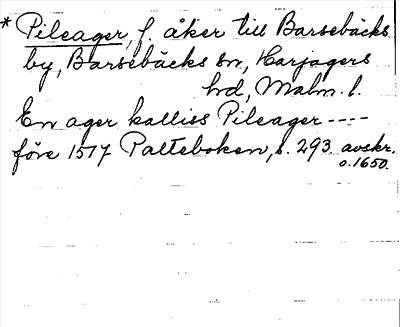 * Pileager, f. åker till Barsebäcks
by, Barsebäcks sn, Harjagers
hd, Malm. l.
En ager kalliss Pileager ----
före 1517 Palteboken, s. 293 avskr.
o. 1650.